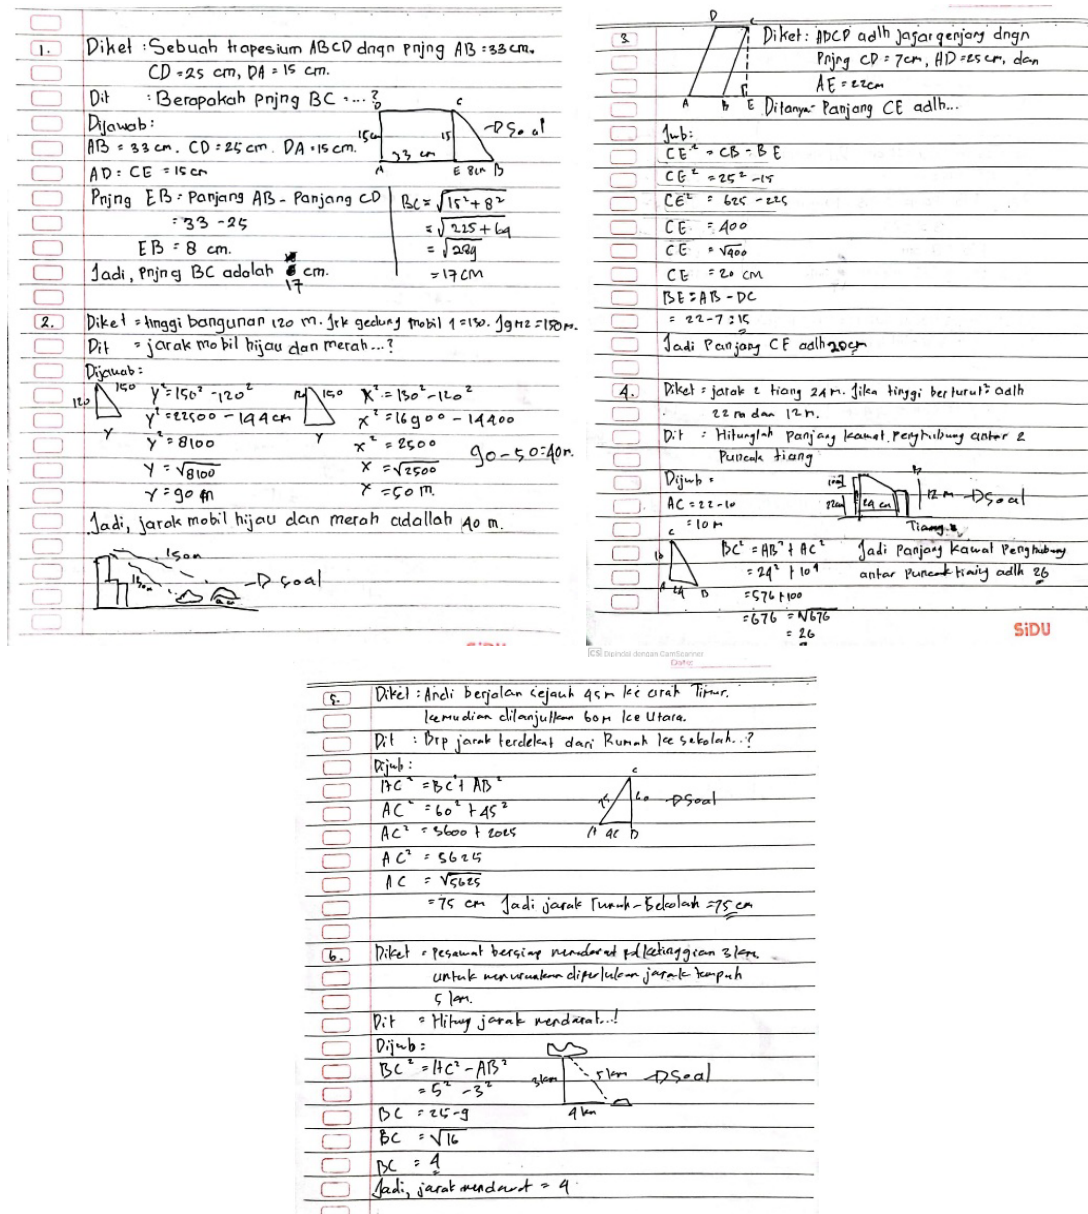 1. Diket : Sebuah trapesium ABCD dngn pnjng AB = 33 cm.
CD = 25 cm, DA = 15 cm.
Dit : Berapakah pnjng BC = ... ?
Dijawab :
AB = 33 cm. CD = 25 cm. DA = 15 cm.
AD = CE = 15 cm
D C
15cm 15 → Soal
33 cm
A E 8cm B
Pnjng EB = Panjang AB - Panjang CD
= 33 - 25
EB = 8 cm.
Jadi, pnjng BC adalah cm.
17
BC = √15² + 8²
= √225 + 64
= √289
= 17 CM
2. Diket = tinggi bangunan 120 m. Jrk gedung mobil 1 = 130. Jg M2 = 150 m.
Dit = jarak mobil hijau dan merah...?
Dijawab :
120 150
Y
Y² = 150² - 120²
Y² = 22500 - 144 cm
Y² = 8100
Y = √8100
Y = 90 m
150
Y
X² = 130² - 120²
x² = 16900 - 14400
x² = 2500
x = √2500
x = 50 m.
90 - 50 = 40 m.
Jadi, jarak mobil hijau dan merah adallah 40 m.
150m
130m → soal
SiDU
3. D C
A B E
Diket : ABCD adlh jajargenjang dngn
Pnjng CD = 7 cm, AD = 25 cm, dan
AE = 22cm
Ditanya = Panjang CE adlh...
Jwb :
CE² = CB - BE
CE² = 25² - 15
CE² = 625 - 225
CE = 400
CE = √400
CE = 20 cm
BE = AB - DC
= 22 - 7 = 15
Jadi Panjang CE adlh 20cm
4. Diket = jarak 2 tiang 24 m. Jika tinggi berturut² adlh
22 m dan 12 m.
Dit : Hitunglah panjang kawat penghubung antar 2
Puncak tiang
Dijwb =
AC = 22 - 10
= 10 M
22m 24 cm 12 m → Soal
Tiang
C
10
A 24 B
BC² = AB² + AC²
= 24² + 10²
= 576 + 100
= 676 = √676
= 26
Jadi panjang kawat Penghubung
antar Puncak tiang adlh 26
SiDU
CS Dipindai dengan CamScanner
Date:
5. Diket : Andi berjalan sejauh 45 m ke arah Timur.
kemudian dilanjutkan 60 m ke Utara.
Dit : Brp jarak terdekat dari Rumah ke sekolah..?
Dijwb :
AC² = BC² + AB²
AC² = 60² + 45²
AC² = 3600 + 2025
AC² = 5625
AC = √5625
= 75 cm Jadi jarak rumah - Sekolah = 75 cm
C
75 60 → Soal
A 45 B
6. Diket = pesawat bersiap mendarat pd ketinggian 3 km.
untuk menurunkan diperlukan jarak tempuh
5 km.
Dit = Hitung jarak mendarat...!
Dijwb :
BC² = AC² - AB²
= 5² - 3²
BC = 25 - 9
BC = √16
BC = 4
Jadi, jarak mendarat = 4
3 km 5 km → Soal
4 km